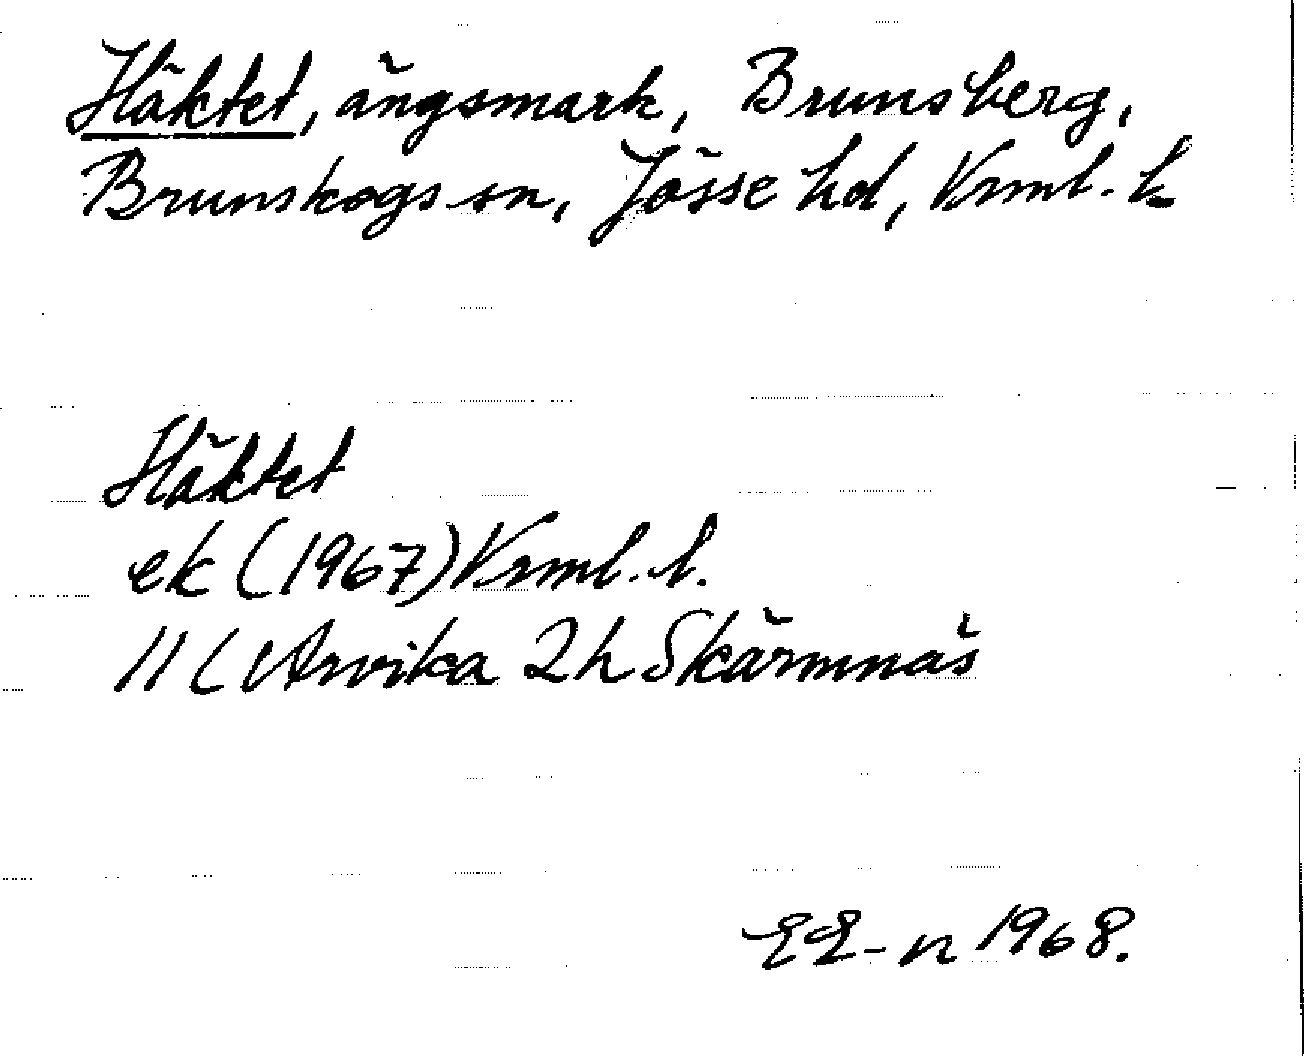 Häktet, ängsmark, Brunsberg,
Brunskogs sn, Jösse hd, Vrml. l.
Häktet
ek (1967) Vrml. l.
11 C Arvika 2h Skärmnäs
EE-n 1968.